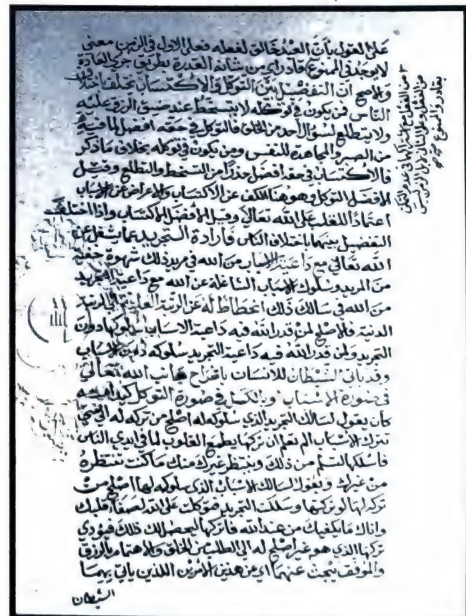 على القول بأن العبد خالق لفعله فعلى الاول في الزمن معنى
لا يوجد في الممنوع قادر اي من شأنه القدرة بطريق جري العادة
والاصح ان التفضيل بين التوكل والاكتساب يختلف باختلاف
الناس فمن يكون في توكله لا يتسخط عند ضيق الرزق عليه
ولا يتطلع لسؤال احد من الخلق فالتوكل في حقه افضل لما فيه
من الصبر والمجاهدة للنفس ومن يكون في توكله بخلاف ما ذكر
فالاكتساب في حقه افضل حذرا من التسخط والتطلع وقيل
الافضل التوكل وهو هنا الكف عن الاكتساب والاعراض عن الاسباب
اعتمادا للقلب على الله تعالى وقيل الافضل الاكتساب واذا اختلف
التفضيل بينهما باختلاف الناس فارادة التجريد عما يشغل عن
الله تعالى مع داعية الاسباب من الله في مريد ذلك شهوة خفية
من المريد وسلوك الاسباب الشاغلة عن الله مع داعية التجريد
من الله في سالك ذلك انحطاط له عن الرتبة العلية الى الرتبة
الدنية فالاصلح لمن قدر الله فيه داعية الاسباب سلوكها دون
التجريد ولمن قدر الله فيه داعية التجريد سلوكه دون الاسباب
وقد يأتي الشيطان للانسان باطراح جانب الله تعالى
في صورة الاسباب وبالكسل في صورة التوكل كيدا منه
كان يقول لسالك التجريد الذي سلوكه له اصلح من تركه له الى متى
تترك الاسباب الم تعلم ان تركها يطمع القلوب لما في ايدي الناس
فاسلكها لتسلم من ذلك وينتظر غيرك منك ما كنت تنتظره
من غيرك ويقول لسالك الاسباب الذي سلوكه لها اصلح من
تركه لها لو تركتها وسلكت التجريد فتوكلت على الله لصفا قلبك
واتاك ما يكفيك من عند الله فاتركها ليحصل لك ذلك فيؤدي
تركها الذي هو غير اصلح له الى الطلب من الخلق والاهتمام بالرزق
والموفق يبحث عنهما اي عن هذين الامرين اللذين ياتي بهما
الشيطان